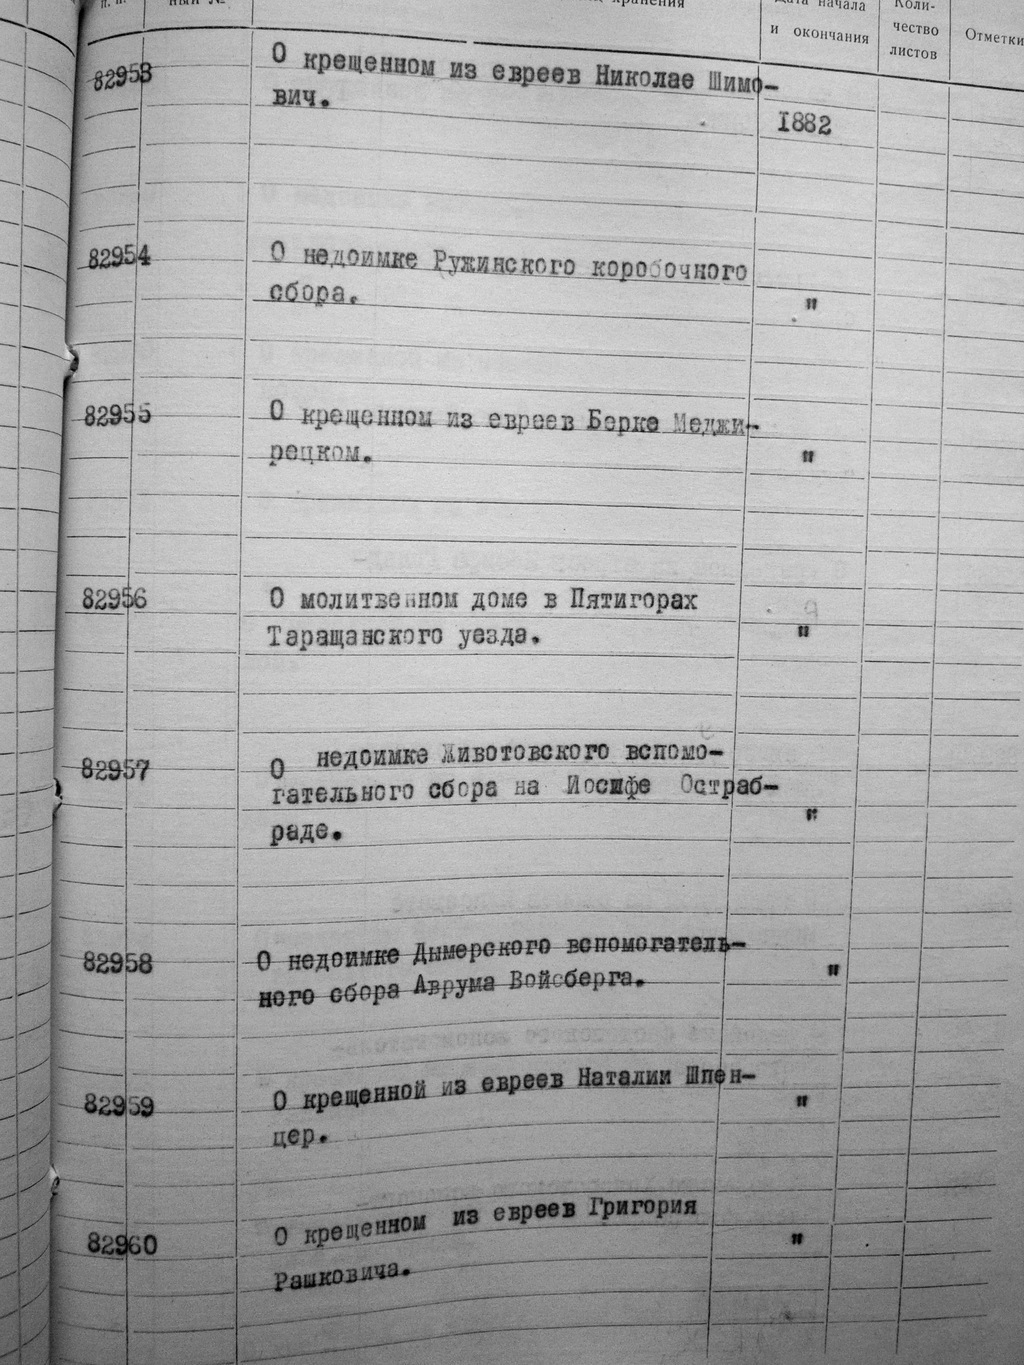 п. п.
ный №
хранения
Дата начала
и окончания
Коли-
чество
листов
Отметки
82953
О крещенном из евреев Николае Шимо-
вич.
1882
82954
О недоимке Ружинского коробочного
сбора.
"
82955
О крещенном из евреев Берке Меджи-
рецком.
"
82956
О молитвенном доме в Пятигорах
Таращанского уезда.
"
82957
О недоимке Животовского вспомо-
гательного сбора на Иосифе Остраб-
раде.
"
82958
О недоимке Дымерского вспомогатель-
ного сбора Аврума Войсберга.
"
82959
О крещенной из евреев Наталии Шпен-
цер.
"
82960
О крещенном из евреев Григория
Рашковича.
"